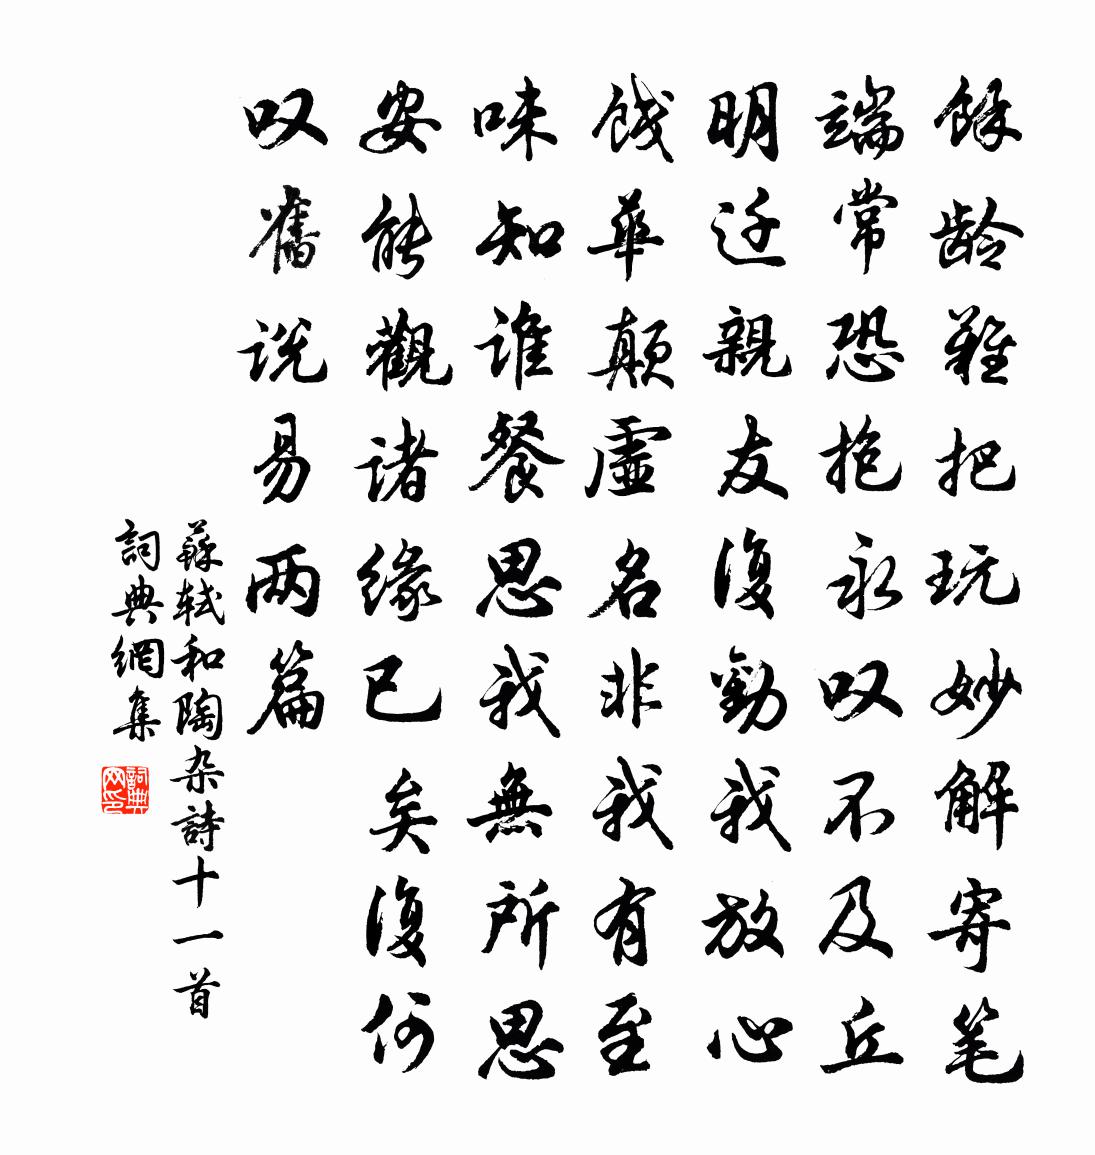 餘龄難把玩妙解寄笔
端常恐抱永叹不及丘
明迁親友復勸我放心
餞華顛虛名非我有至
味知谁餐思我無所思
安能觀诸缘已矣復何
叹舊说易两篇
蘇軾和陶杂詩十一首
詞典網集
詞典网印